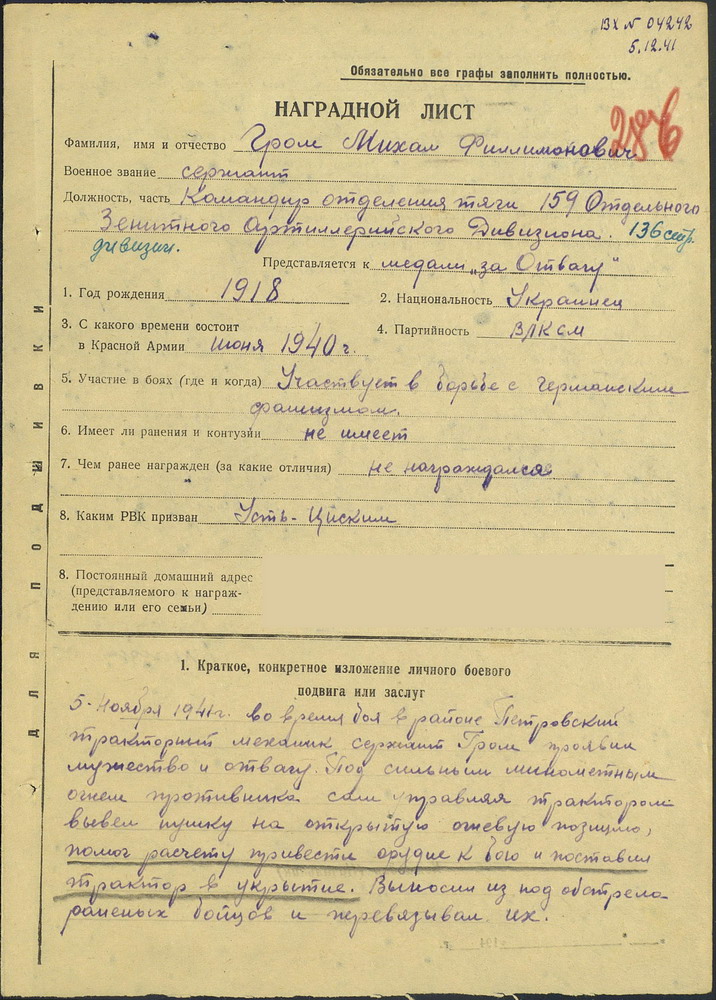 ВХ № 04242
5.12.41
Обязательно все графы заполнить полностью.
НАГРАДНОЙ ЛИСТ
286
Фамилия, имя и отчество Гром Михаил Филлимонович
Военное звание сержант
Должность, часть Командир отделения тяги 159 Отдельного
Зенитного Артиллерийского Дивизиона. 136 стр.
дивизии.
Представляется к медали „за Отвагу"
1. Год рождения 1918
2. Национальность Украинец
3. С какого времени состоит
в Красной Армии июня 1940 г.
4. Партийность ВЛКСМ
5. Участие в боях (где и когда) Участвует в борьбе с германским
фашизмом.
6. Имеет ли ранения и контузии не имеет
7. Чем ранее награжден (за какие отличия) не награждался
8. Каким РВК призван Усть-
8. Постоянный домашний адрес
(представляемого к награж-
дению или его семьи)
ДЛЯ ПОДШИВКИ
1. Краткое, конкретное изложение личного боевого
подвига или заслуг
5-ноября 1941 г. во время боя в районе Петровский
тракторный механик сержант Гром проявил
мужество и отвагу. Под сильным минометным
огнем противника сам управляя трактором
вывел пушку на открытую огневую позицию,
помог расчету привести орудие к бою и поставил
трактор в укрытие. Выносил из под обстрела
раненых бойцов и перевязывал их.